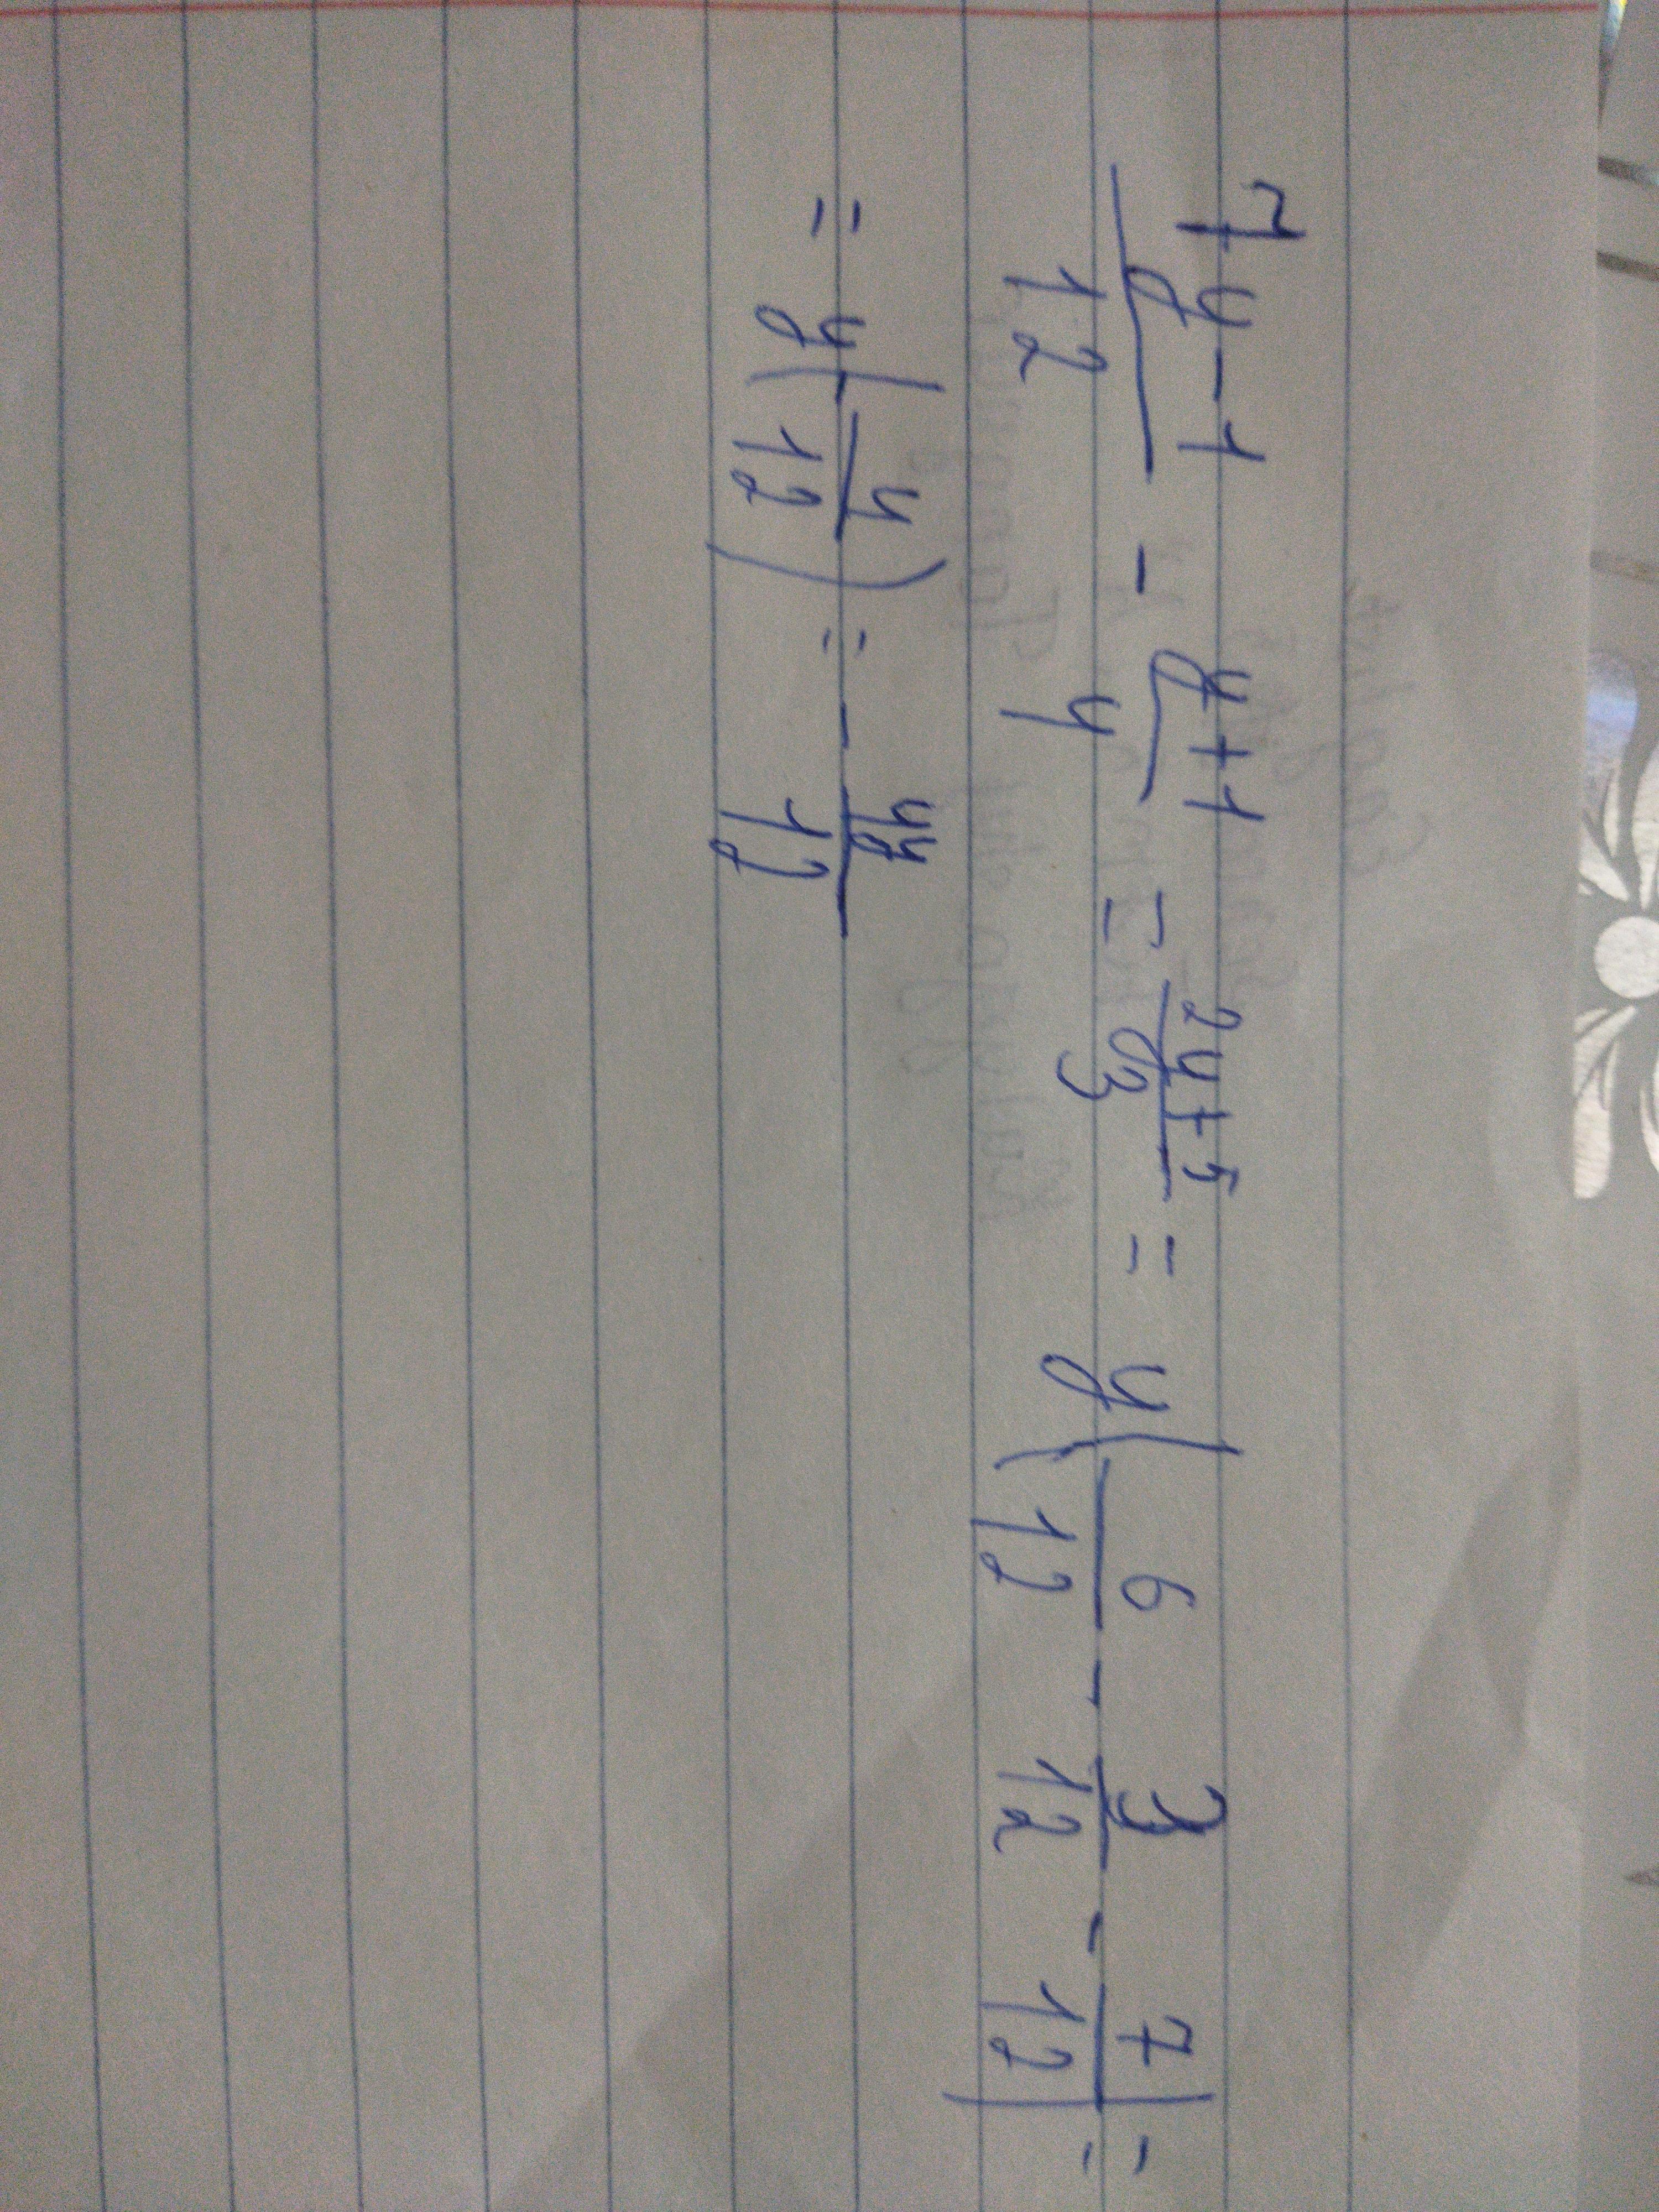 7y-1/12 - y+1/4 = 2y+5/3 = y(6/12 - 3/12 - 7/12) =
= y(-4/12) = -4y/12